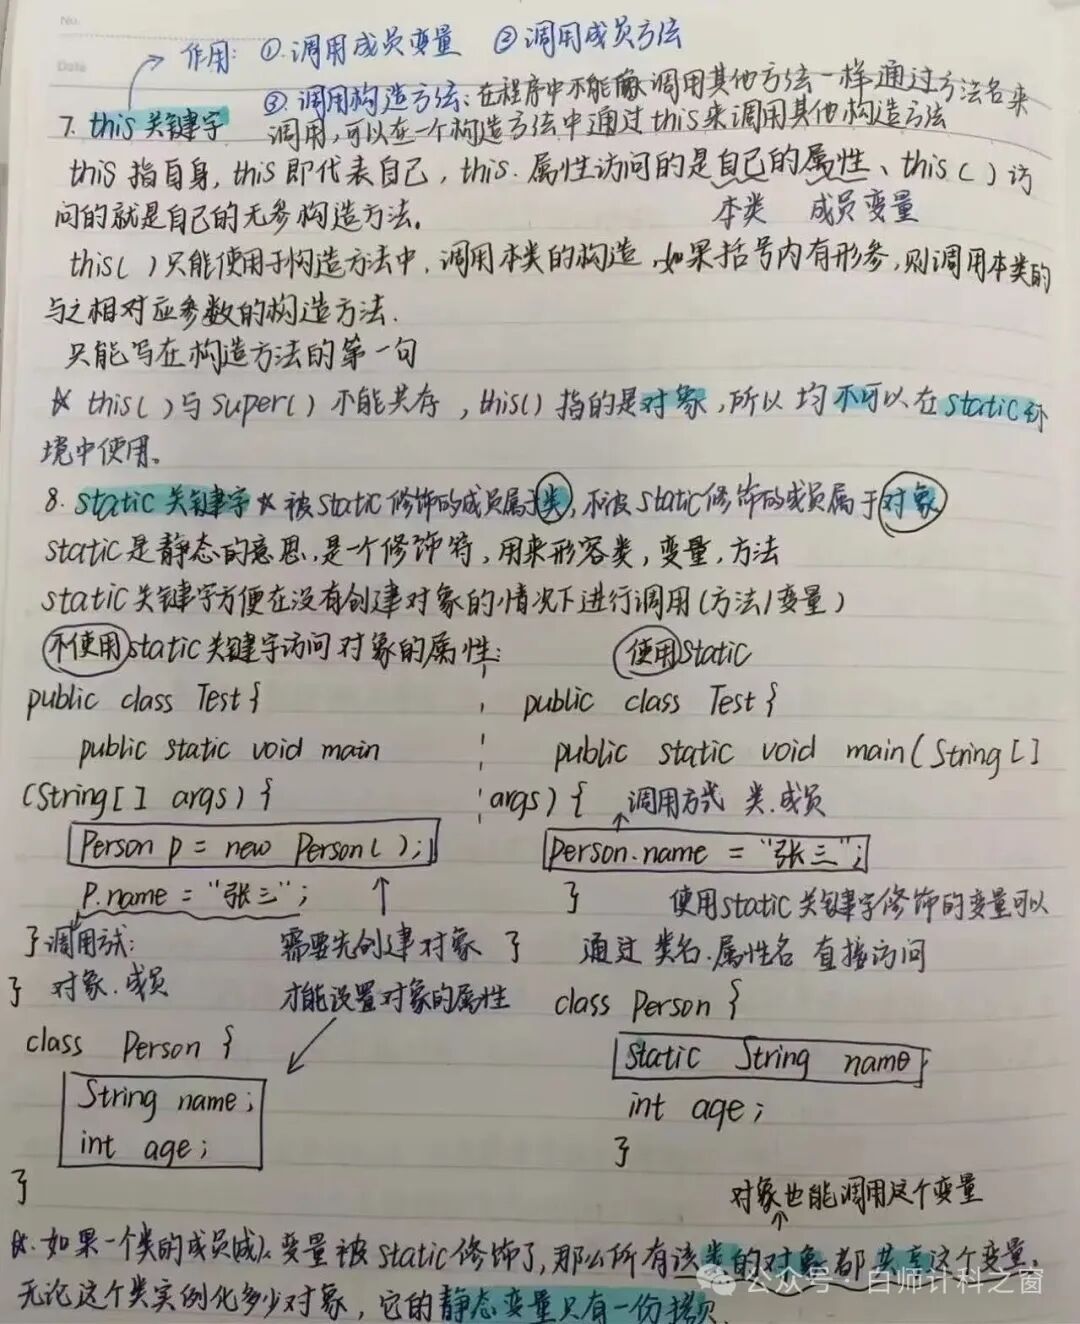 No.
Date
作用: ①.调用成员变量 ②调用成员方法
③.调用构造方法:在程序中不能像调用其他方法一样通过方法名来
7. this关键字 调用,可以在一个构造方法中通过this来调用其他构造方法
this指自身,this即代表自己,this.属性访问的是自己的属性、this()访
问的就是自己的无参构造方法。 本类 成员变量
this()只能使用于构造方法中,调用本类的构造,如果括号内有形参,则调用本类的
与之相对应参数的构造方法.
只能写在构造方法的第一句
☆ this()与super()不能共存,this()指的是对象,所以均不可以在static环
境中使用。
8. static关键字☆被static修饰的成员属于类,不被static修饰的成员属于对象
static是静态的意思,是一个修饰符,用来形容类,变量,方法
static关键字方便在没有创建对象的情况下进行调用(方法/变量)
不使用static关键字访问对象的属性: 使用static
public class Test{ public class Test{
public static void main public static void main(String[]
(String[] args){ args){ 调用方式 类.成员
Person p = new Person(); person.name = "张三";
p.name = "张三"; } 使用static关键字修饰的变量可以
}调用方式: 需要先创建对象 } 通过 类名.属性名 直接访问
} 对象.成员 才能设置对象的属性 class person{
class Person { static String name
String name; int age;
int age; }
} 对象也能调用这个变量
☆.如果一个类的成员变量被static修饰了,那么所有该类的对象都共享这个变量,
无论这个类实例化多少对象,它的静态变量只有一份拷贝.
公众号·白师计科之窗